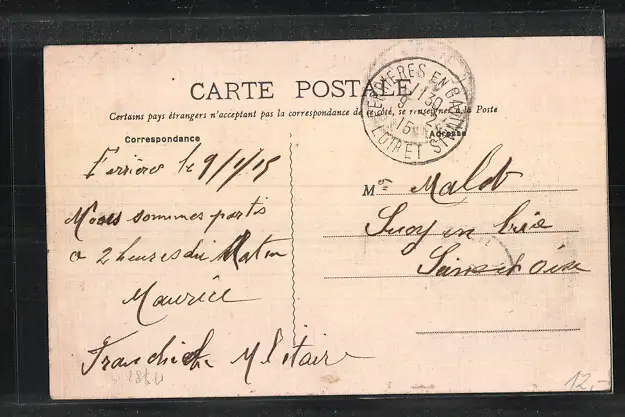 CARTE POSTALE
Certains pays étrangers n'acceptent pas la correspondance de ce côté, se renseigner à la Poste
Correspondance
Adresse
FERRIERES EN GATINAIS
LOIRET
Ferrières le 9/2/15
Nous sommes partis
a 2 heures du Matin
Maurice
Franchise Militaire
M Malot
Sucy en brie
Seine et Oise
12,-